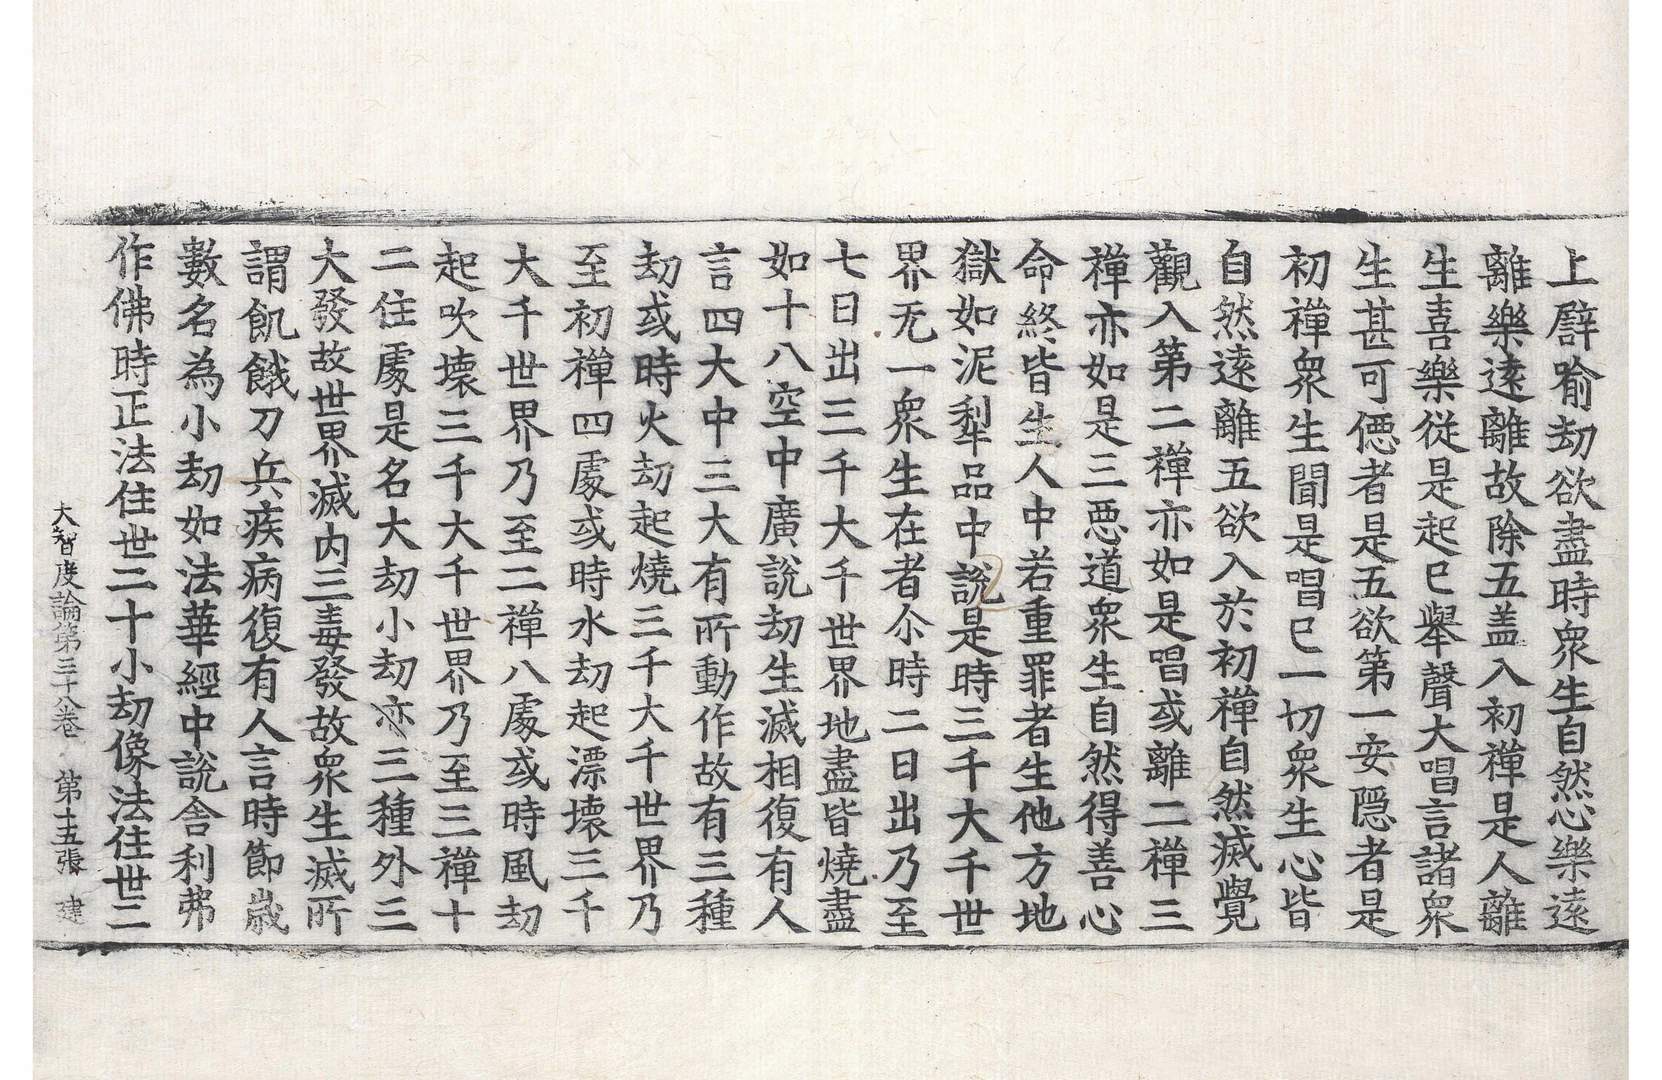 上譬喻劫欲盡時衆生自然心樂遠
離樂遠離故除五盖入初禪是人離
生喜樂從是起已舉聲大唱言諸衆
生甚可𢙣者是五欲第一安隱者是
初禪衆生聞是唱已一切衆生心皆
自然遠離五欲入於初禪自然滅覺
觀入第二禪亦如是唱或離二禪三
禪亦如是三惡道衆生自然得善心
命終皆生人中若重罪者生他方地
獄如泥犁品中說是時三千大千世
界无一衆生在者尒時二日出乃至
七日出三千大千世界地盡皆燒盡
如十八空中廣說劫生滅相復有人
言四大中三大有所動作故有三種
劫或時火劫起燒三千大千世界乃
至初禪四處或時水劫起漂壞三千
大千世界乃至二禪八處或時風劫
起吹壞三千大千世界乃至三禪十
二住處是名大劫小劫亦三種外三
大發故世界滅内三毒發故衆生滅所
謂飢餓刀兵疾病復有人言時節歲
數名為小劫如法華經中說舍利弗
作佛時正法住世二十小劫像法住世二
大智度論第三十八卷 第十五張 建